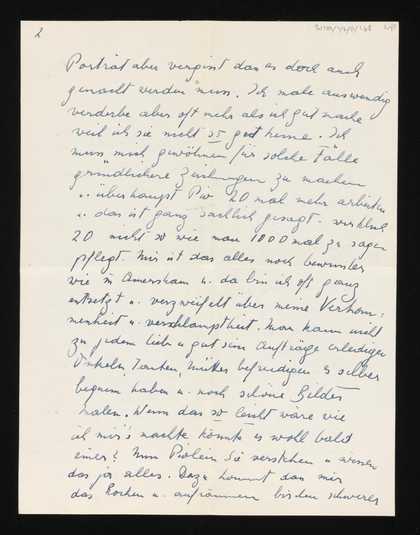 2
Porträt aber vergisst dass es doch auch
gemacht werden muss. Ich male auswendig
verderbe aber oft mehr als ich gut mache
weil ich sie nicht so gut kenne. Ich
muss mich gewöhnen für solche Fälle
gründlichere Zeichnungen zu machen
u. überhaupt Piv 20 mal mehr arbeiten
u. das ist ganz sachlich gesagt - wirklich
20 nicht so wie man 1000 mal zu sagen
pflegt. Mir ist das alles noch bewusster
wie in Amersham u. da bin ich oft ganz
entsetzt u. verzweifelt über meine Verkom=
menheit u. verschlamptheit. Man kann nicht
zu jedem lieb u gut sein Aufträge erledigen
Onkeln Tanten, Mütter befriedigen es selber
bequem haben u. noch schöne Bilder
malen. Wenn das so leicht wäre wie
ich mir's machte könnte es wohl bald
einer! Nun Sie verstehen u wissen
das ja alles. Dazu kommt dass mir
das Kochen u. aufräumen bis den schweres